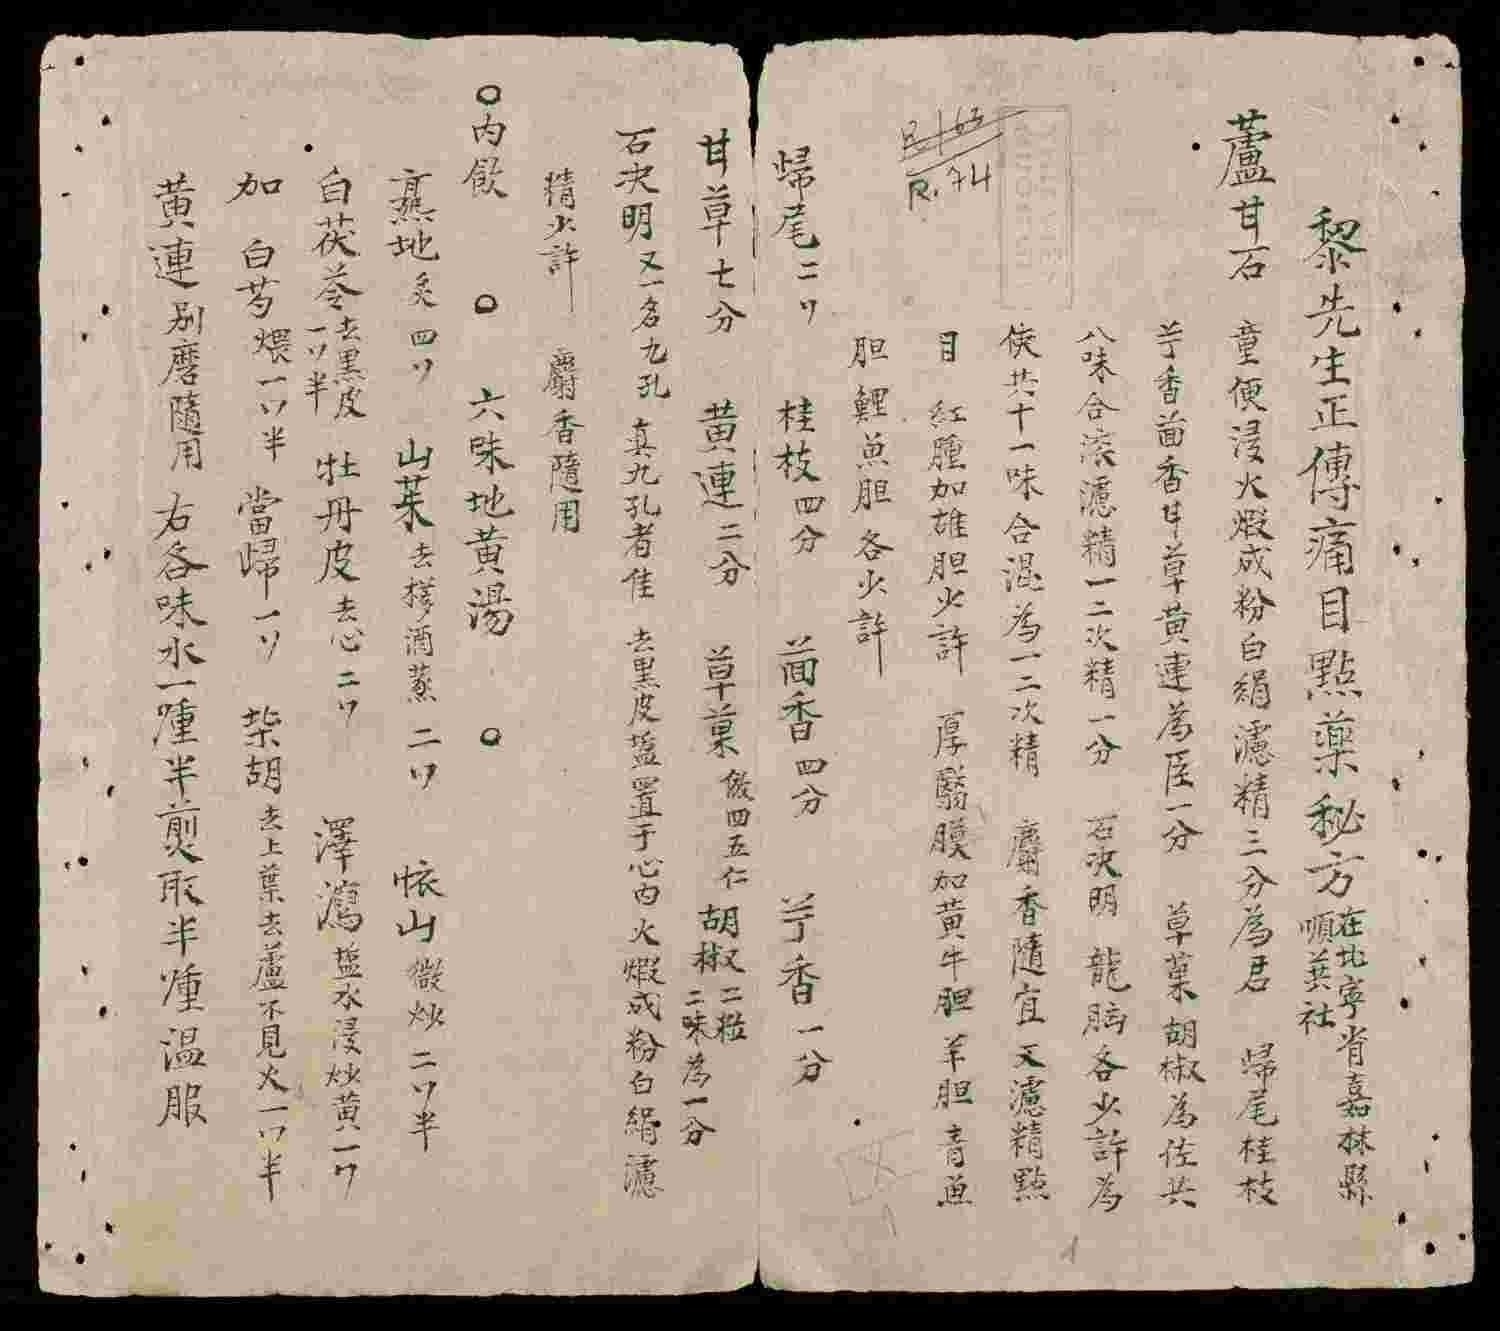 黎先生正傳痛目點藥秘方 在北寧省嘉林縣順萁社
蘆甘石 童便浸火煆成粉白絹濾精三分為君 歸尾桂枝
芋香茴香甘草黃連為臣一分 草菓胡椒為佐共
八味合滾濾精一二次精一分 石決明 龍脳各少許為
使共十一味合混為一二次精 麝香隨宜又濾精點
目 紅腫加雄胆少許 厚翳膜加黃牛胆 羊胆 青魚
胆鯉魚胆各少許
R 163
R. 74
歸尾二刀 桂枝四分 茴香四分 芋香一分
甘草七分 黃連二分 草菓 做四五仁 胡椒二粒 二味為一分
石决明 又一名九孔 真九孔者佳 去黑皮塩置于心內火煆成粉白絹濾
精少許 麝香隨用
○內飲 ○ 六味地黃湯 ○
熹地炙四刀 山茱去核酒蒸二刀 怀山微炒二刀半
白茯苓去黑皮一刀半 牡丹皮去心二刀 澤瀉塩水浸炒黃一刀
加 白芍煨一刀半 當歸一刀 柴胡去上葉去蘆不見火一刀半
黃連别磨隨用 右各味水一㽿半煎取半㽿温服